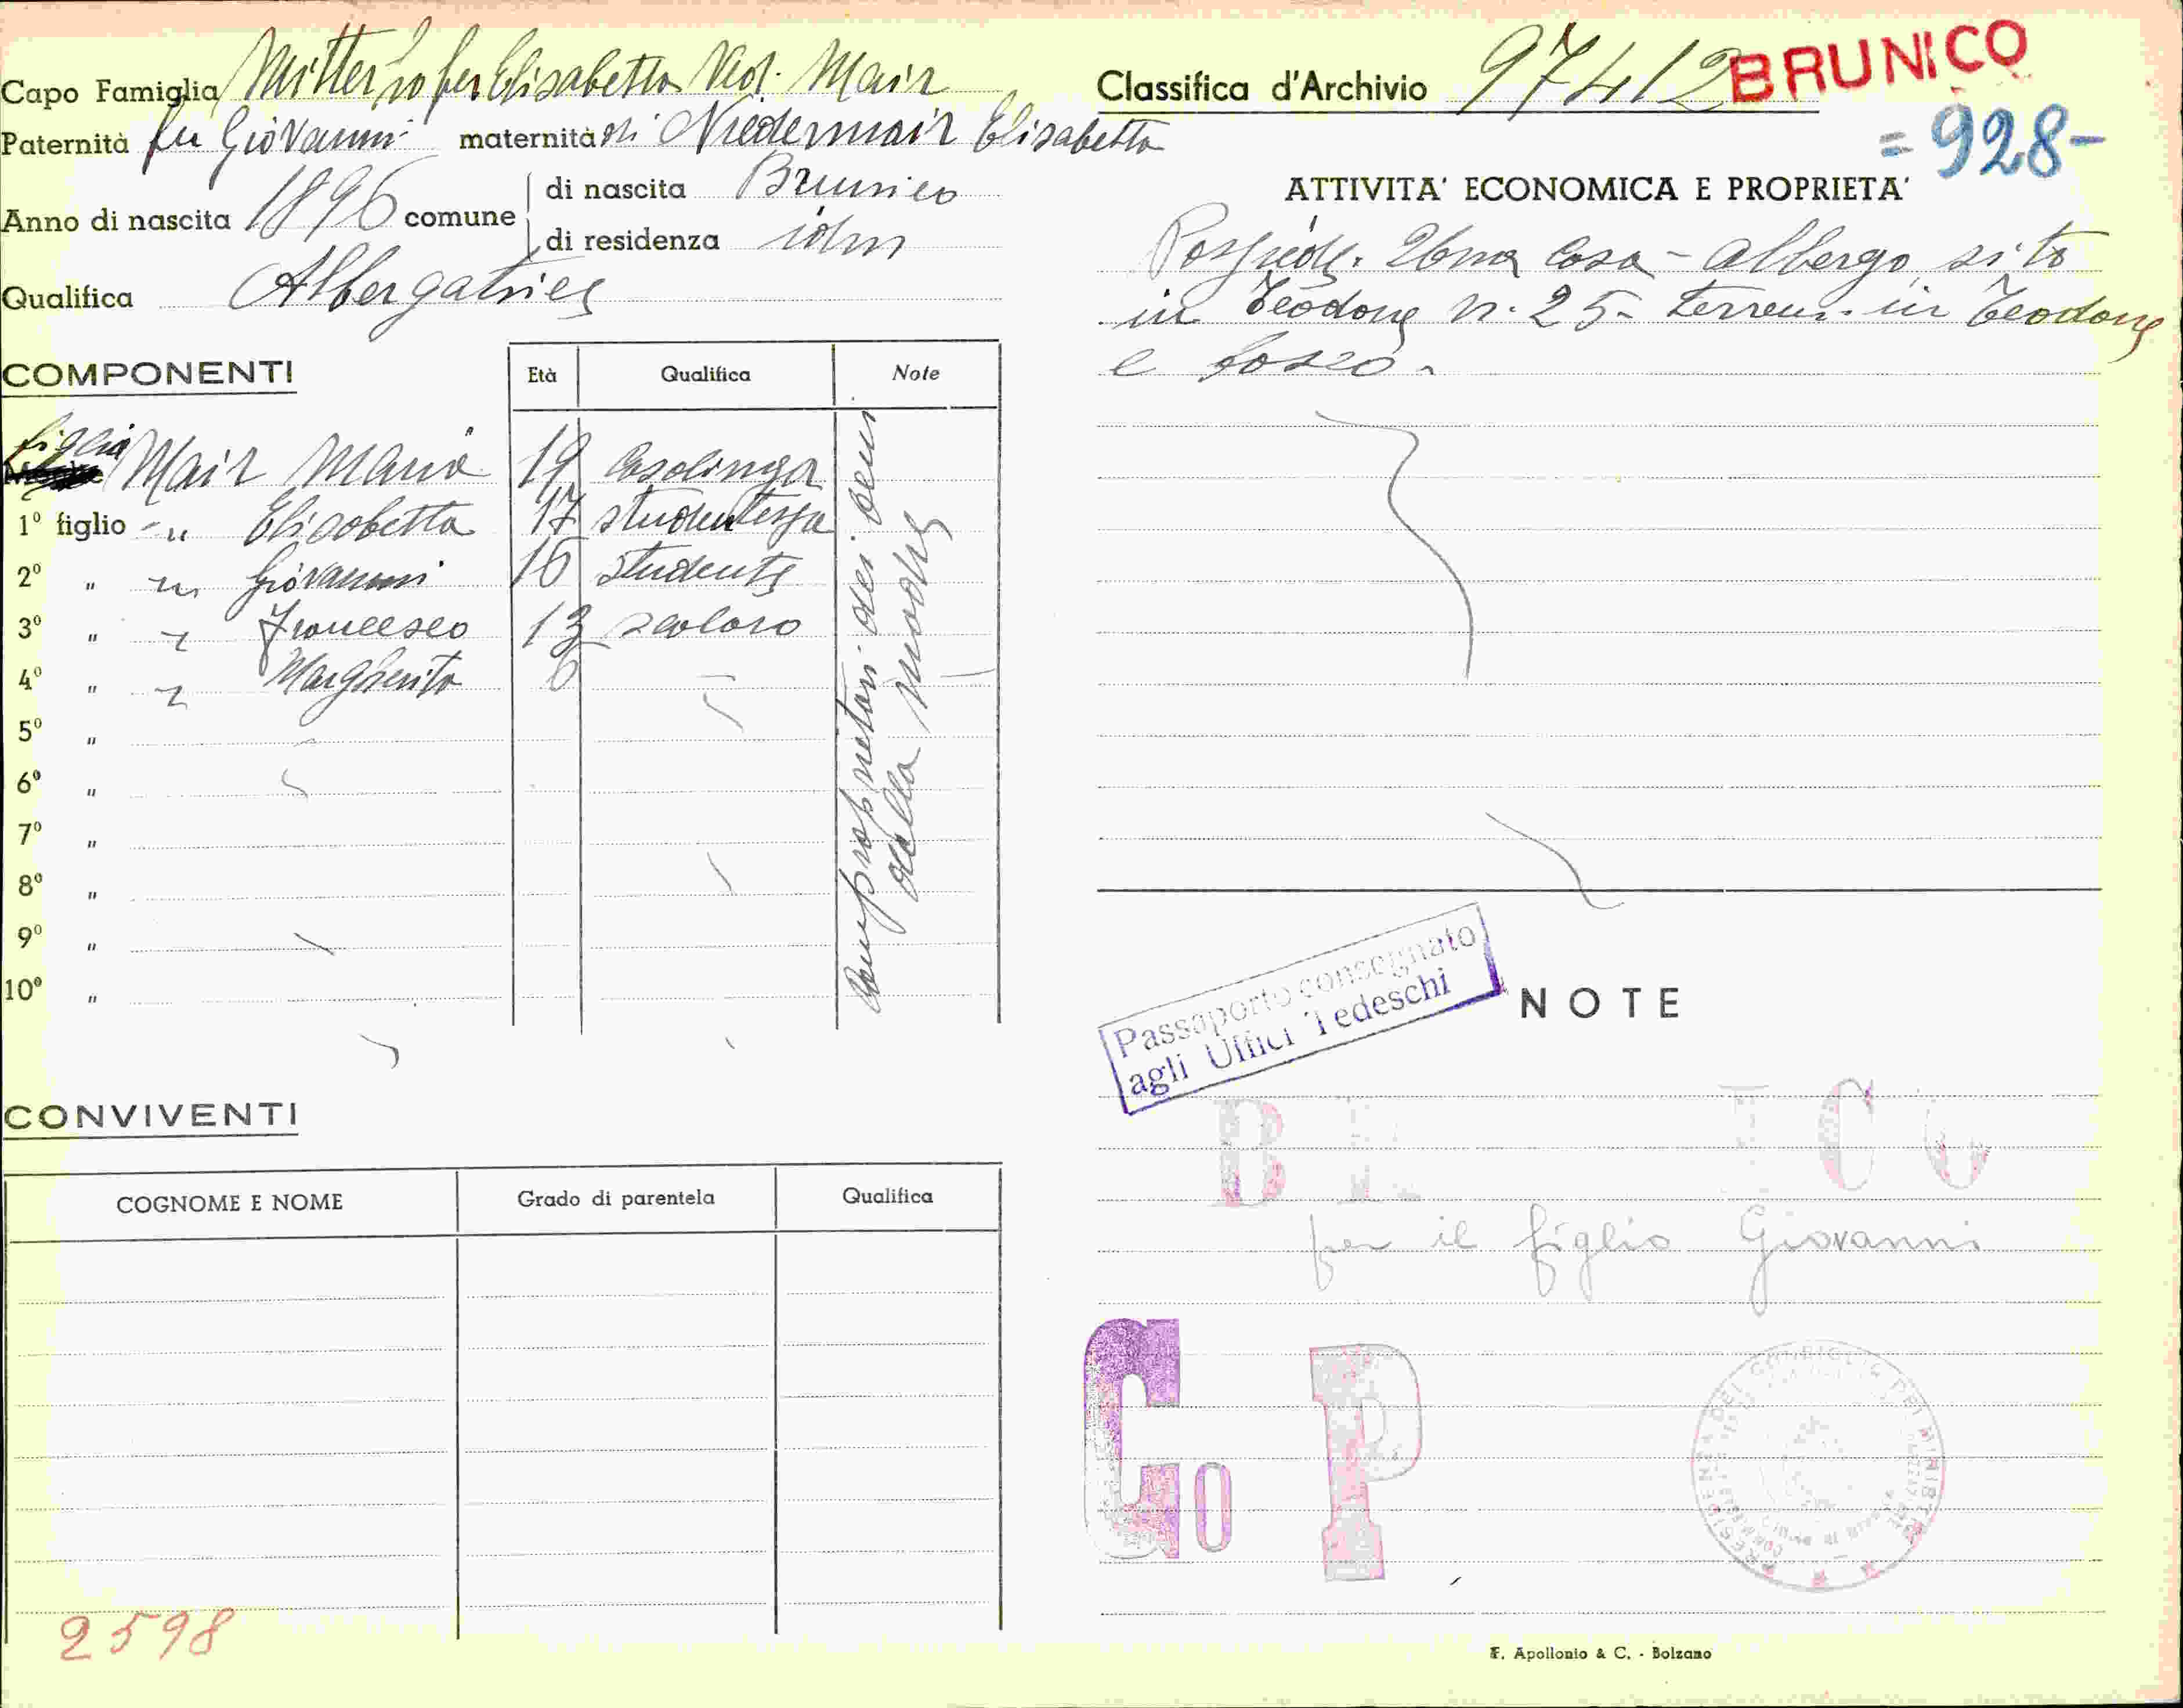 Capo Famiglia Mitterhofer Elisabetta Ved. Mair
Paternità fu Giovanni maternità di Niedermair Elisabetta
Anno di nascita 1896 comune di nascita Brunico
di residenza idem
Qualifica Albergatrice
COMPONENTI
Età Qualifica Note
figlia Mair Maria 19 Casalinga
1º figlio - " Elisabetta 17 studentessa
2º " " Giovanni 16 studente
3º " " Francesco 13 scolaro
4º " " Margherita 6
5º "
6º "
7º "
8º "
9º "
10º "
comproprietari dei beni
della madre
CONVIVENTI
COGNOME E NOME Grado di parentela Qualifica
2598
Classifica d'Archivio 97412 BRUNICO
= 928-
ATTIVITA' ECONOMICA E PROPRIETA'
Possiede una casa - albergo sito
in Teodone n. 25 - terreni in Teodone
e bosco.
Passaporto consegnato
agli Uffici Tedeschi
NOTE
per il figlio Giovanni
Go P
F. Apollonio & C. - Bolzano